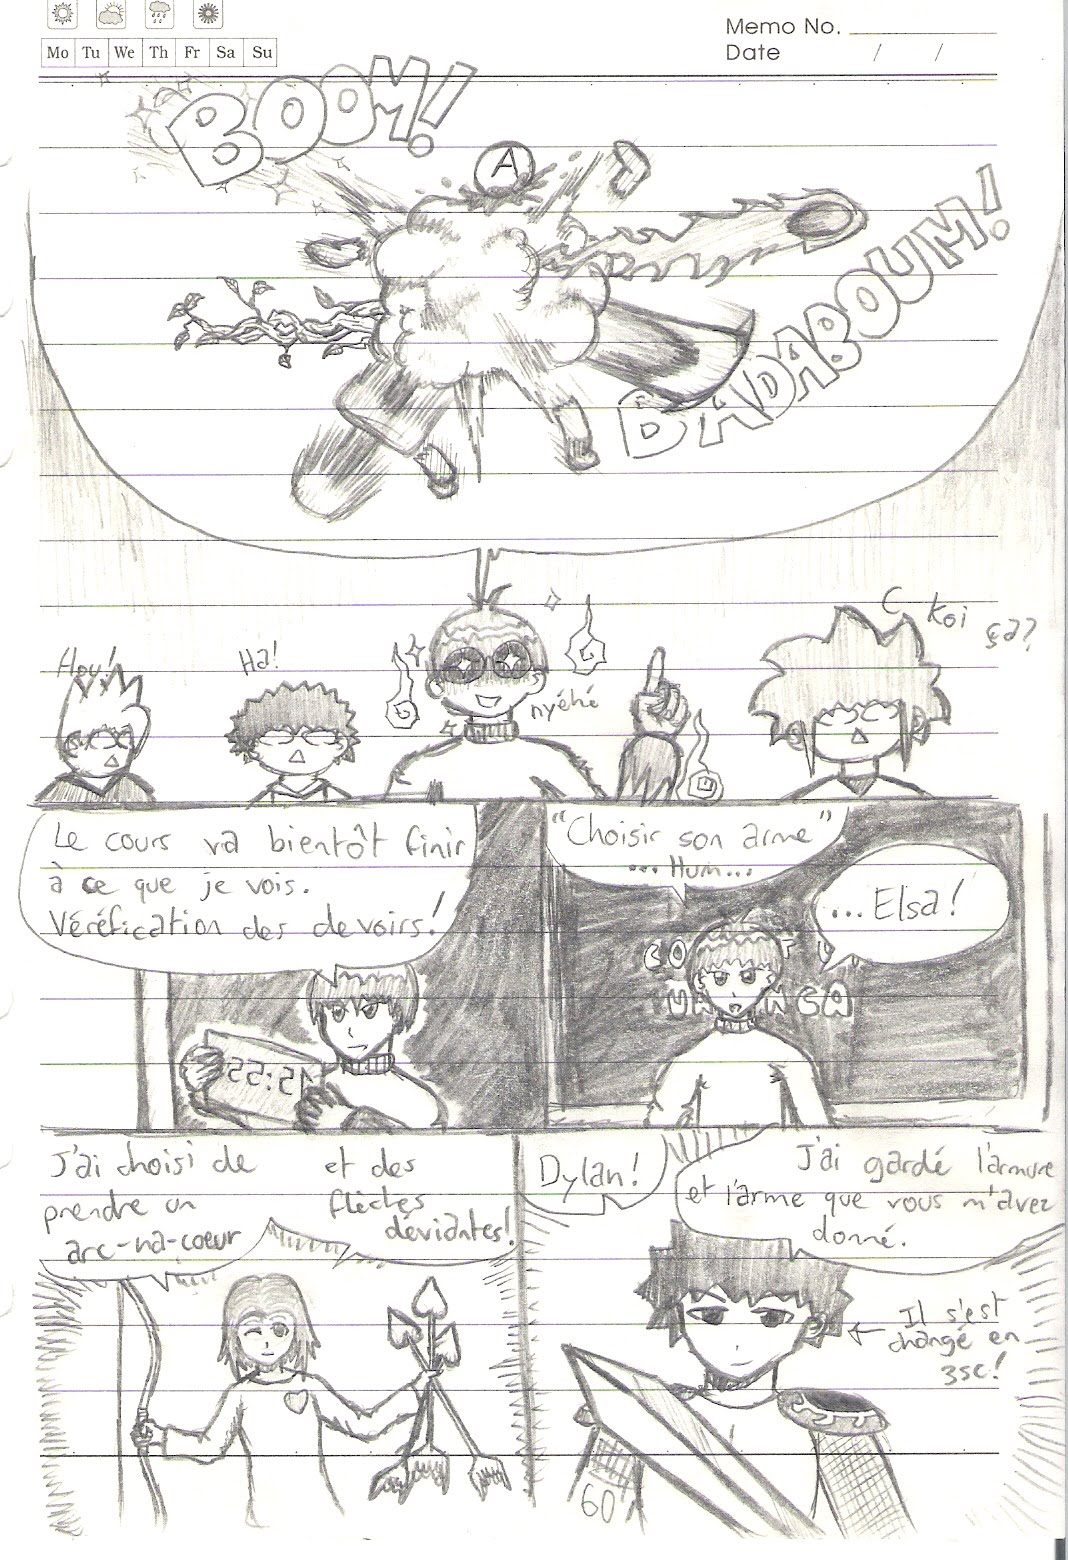 Mo Tu We Th Fr Sa Su
Memo No.
Date / /
BOOM!
A
BADABOUM!
Hou!
Ha!
nyéhé
C koi ça?
Le cours va bientôt finir
à ce que je vois.
Véréfication des devoirs!
"Choisir son arme"
... Hum...
... Elsa!
J'ai choisi de
prendre un
arc-na-coeur
et des
flèches
déviantes!
Dylan!
J'ai gardé l'armure
et l'arme que vous m'avez
donné.
Il s'est
changé en
3sc!
60